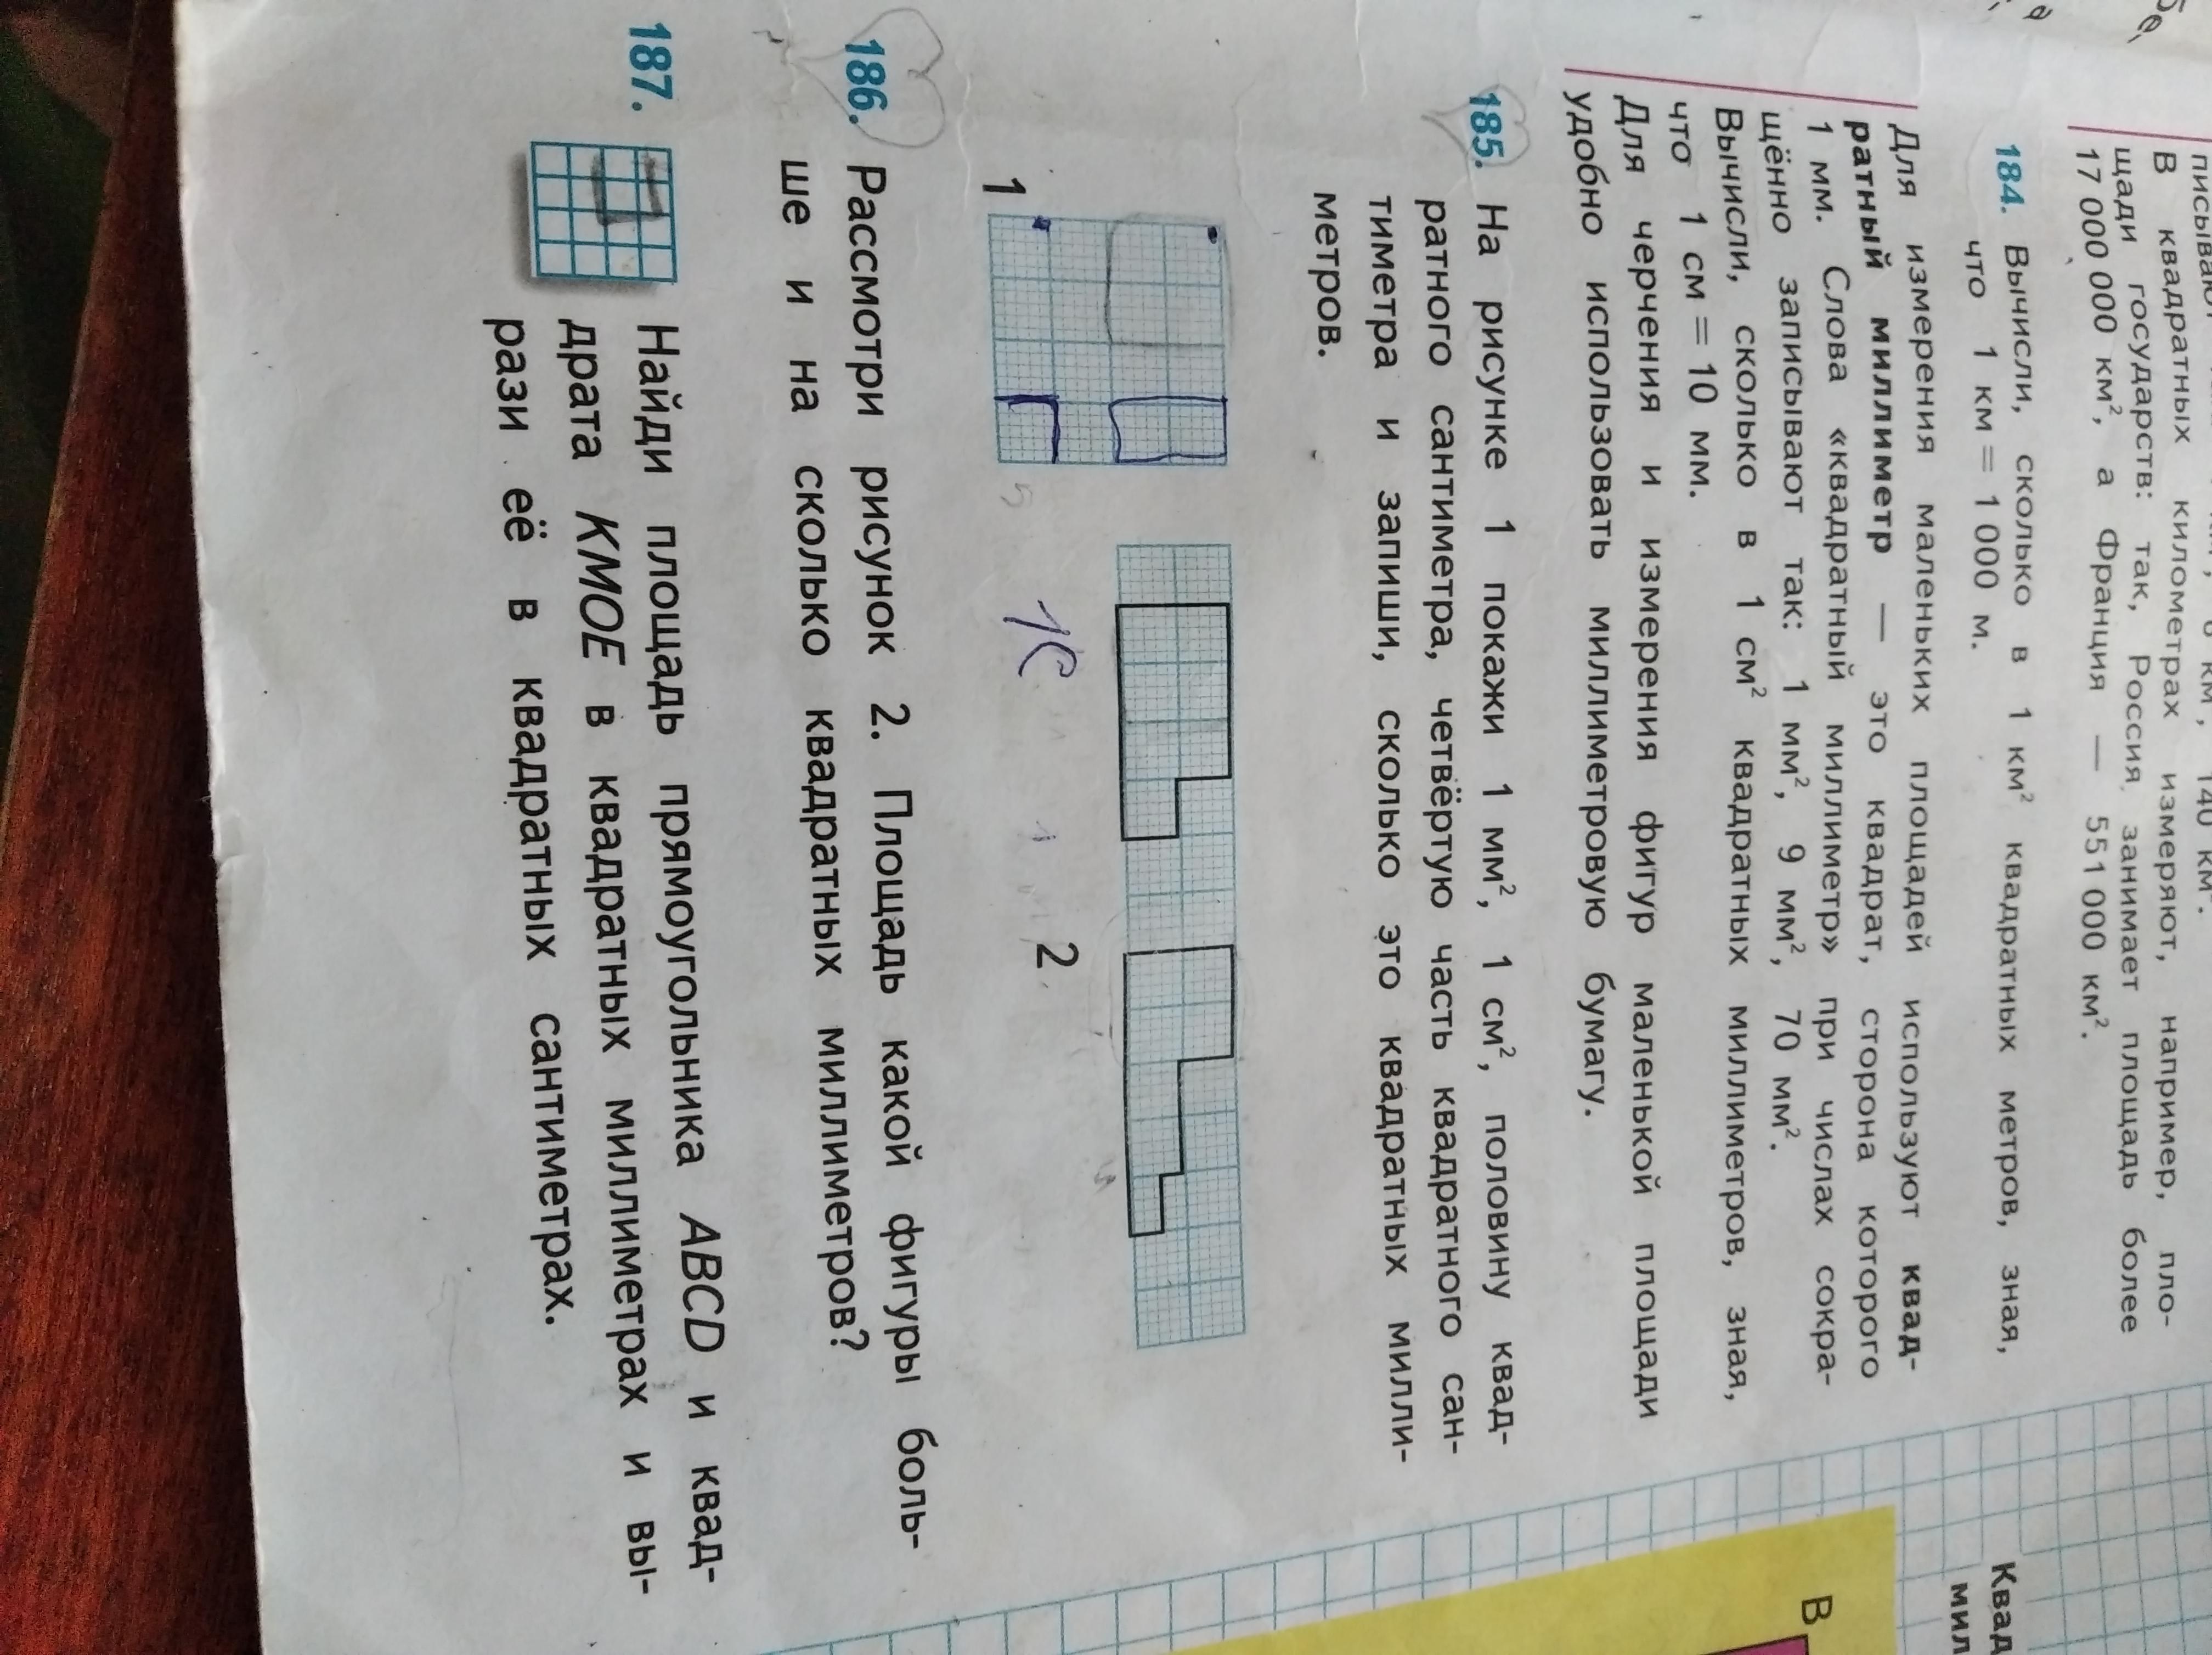 В квадратных километрах измеряют, например, пло-
щади государств: так, Россия занимает площадь более
17 000 000 км², а Франция — 551 000 км².
184. Вычисли, сколько в 1 км² квадратных метров, зная,
что 1 км = 1 000 м.
Для измерения маленьких площадей используют квад-
ратный миллиметр — это квадрат, сторона которого
1 мм. Слова «квадратный миллиметр» при числах сокра-
щённо записывают так: 1 мм², 9 мм², 70 мм².
Вычисли, сколько в 1 см² квадратных миллиметров, зная,
что 1 см = 10 мм.
Для черчения и измерения фигур маленькой площади
удобно использовать миллиметровую бумагу.
185. На рисунке 1 покажи 1 мм², 1 см², половину квад-
ратного сантиметра, четвёртую часть квадратного сан-
тиметра и запиши, сколько это квадратных милли-
метров.
1
2
186. Рассмотри рисунок 2. Площадь какой фигуры боль-
ше и на сколько квадратных миллиметров?
187. Найди площадь прямоугольника ABCD и квад-
драта KMOE в квадратных миллиметрах и вы-
рази её в квадратных сантиметрах.
Квад
мил
B